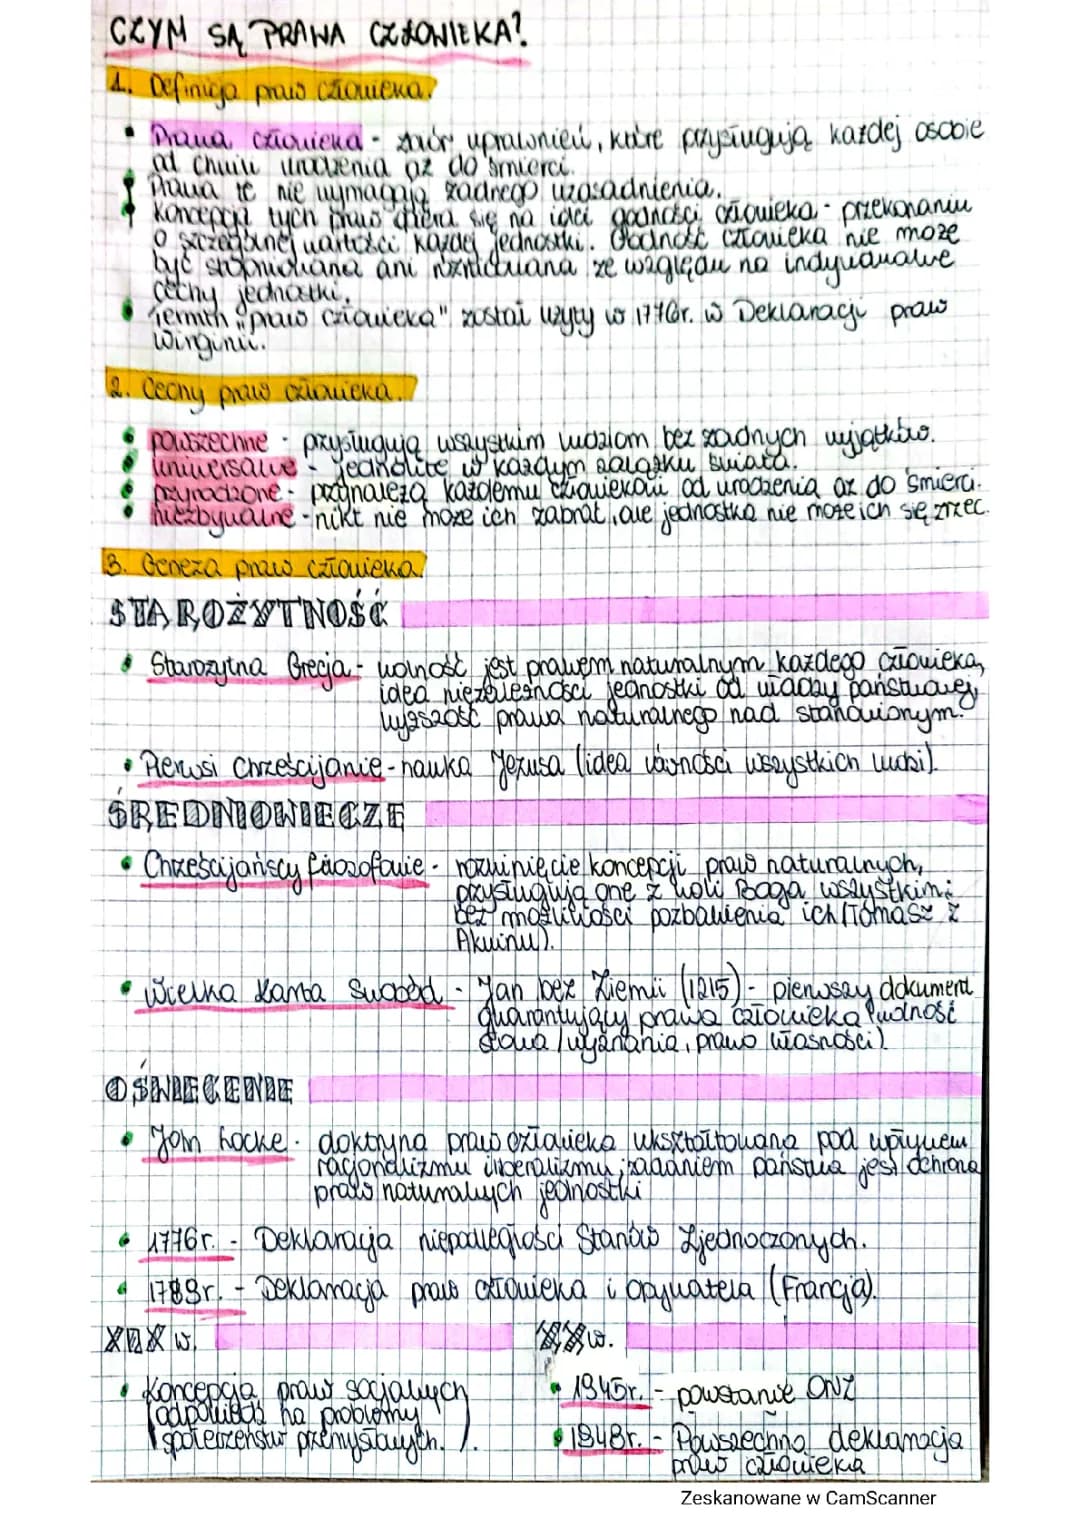 CZYM SĄ PRAWA CZŁOWIEKA?
1. Definicja praw człowieka.
• Prawa człowieka - zbiór uprawnień, które przysługują każdej osobie
od chwili urodzenia aż do śmierci.
• Prawa te nie wymagają żadnego uzasadnienia.
• Koncepcja tych praw opiera się na idei godności człowieka - przekonaniu
o szczególnej wartości każdej jednostki. Godność człowieka nie może
być stopniowana ani różnicowana ze względu na indywidualne
cechy jednostki.
• Termin "praw człowieka" został użyty w 1776r. w Deklaracji praw
Wirginii.
2. Cechy praw człowieka.
• powszechne - przysługują wszystkim ludziom bez żadnych wyjątków.
• uniwersalne - jednolite w każdym zakątku świata.
• przyrodzone - przynależą każdemu człowiekowi od urodzenia aż do śmierci.
• niezbywalne - nikt nie może ich zabrać, ale jednostka nie może ich się zrzec.
3. Geneza praw człowieka.
STAROŻYTNOŚĆ
• Starożytna Grecja - wolność jest prawem naturalnym każdego człowieka,
idea niezależności jednostki od władzy państwowej,
wyższość prawa naturalnego nad stanowionym.
• Pierwsi chrześcijanie - nauka Jezusa (idea równości wszystkich ludzi).
ŚREDNIOWIECZE
• Chrześcijańscy filozofowie - rozwinięcie koncepcji praw naturalnych,
przysługują one z woli Boga wszystkim
bez możliwości pozbawienia ich (Tomasz z
Akwinu).
• Wielka Karta Swobód - Jan bez Ziemii (1215) - pierwszy dokument
gwarantujący prawa człowieka (wolność
słowa / wyznania, prawo własności).
OŚWIECENIE
• John Locke - doktryna praw człowieka ukształtowana pod wpływem
racjonalizmu i liberalizmu; zadaniem państwa jest ochrona
praw naturalnych jednostki
• 1776r. - Deklaracja niepodległości Stanów Zjednoczonych.
• 1789r. - Deklaracja praw człowieka i obywatela (Francja).
XIX w.
• Koncepcja praw socjalnych
(odpowiedź na problemy
społeczeństw przemysłowych.).
XX w.
• 1945r. - powstanie ONZ
• 1948r. - Powszechna deklaracja
praw człowieka
Zeskanowane w CamScanner